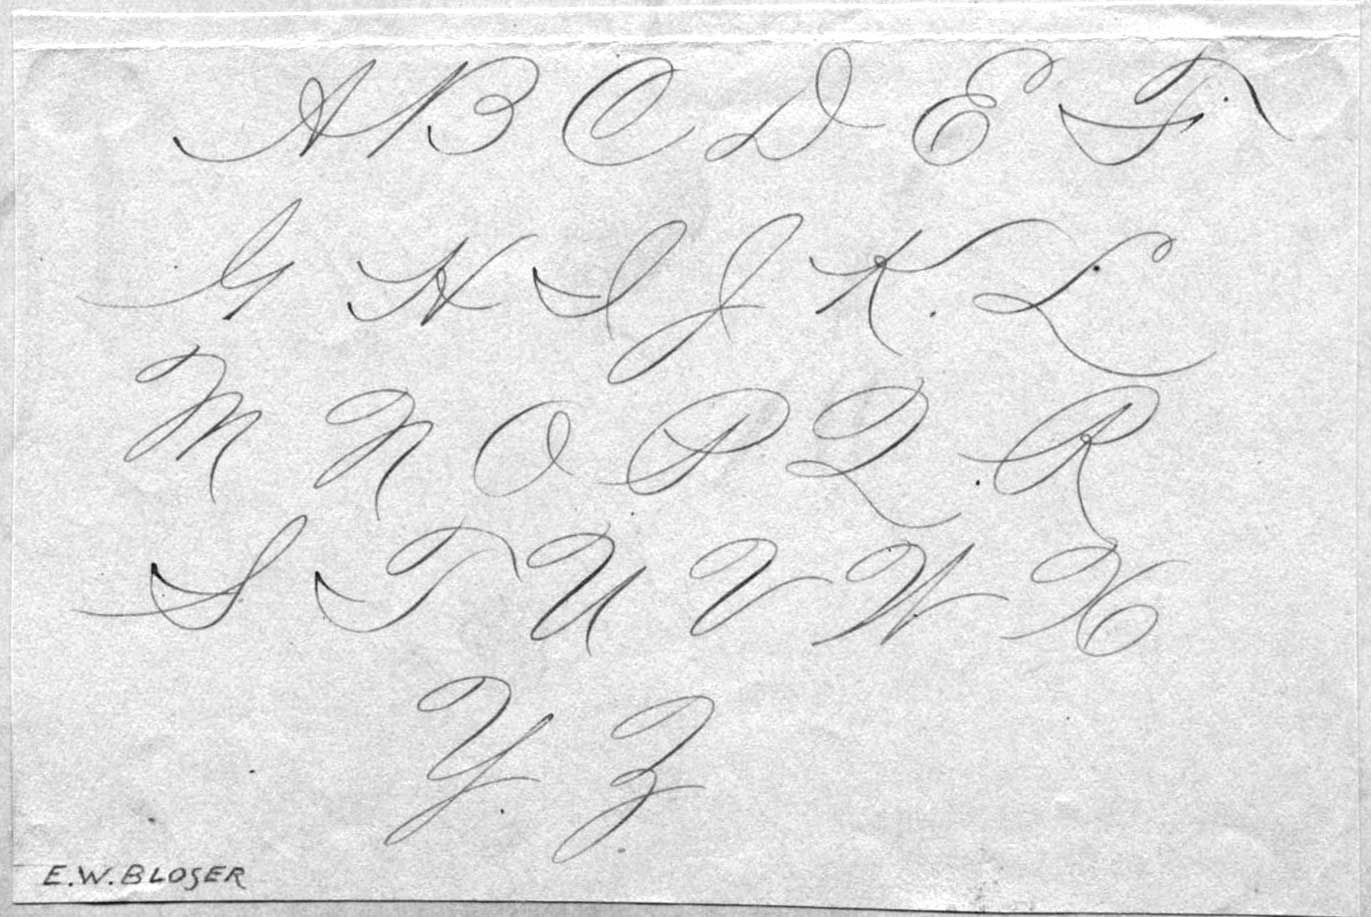 A B C D E F
G H I J K L
M N O P Q R
S T U V W X
Y Z
E.W. BLOSER